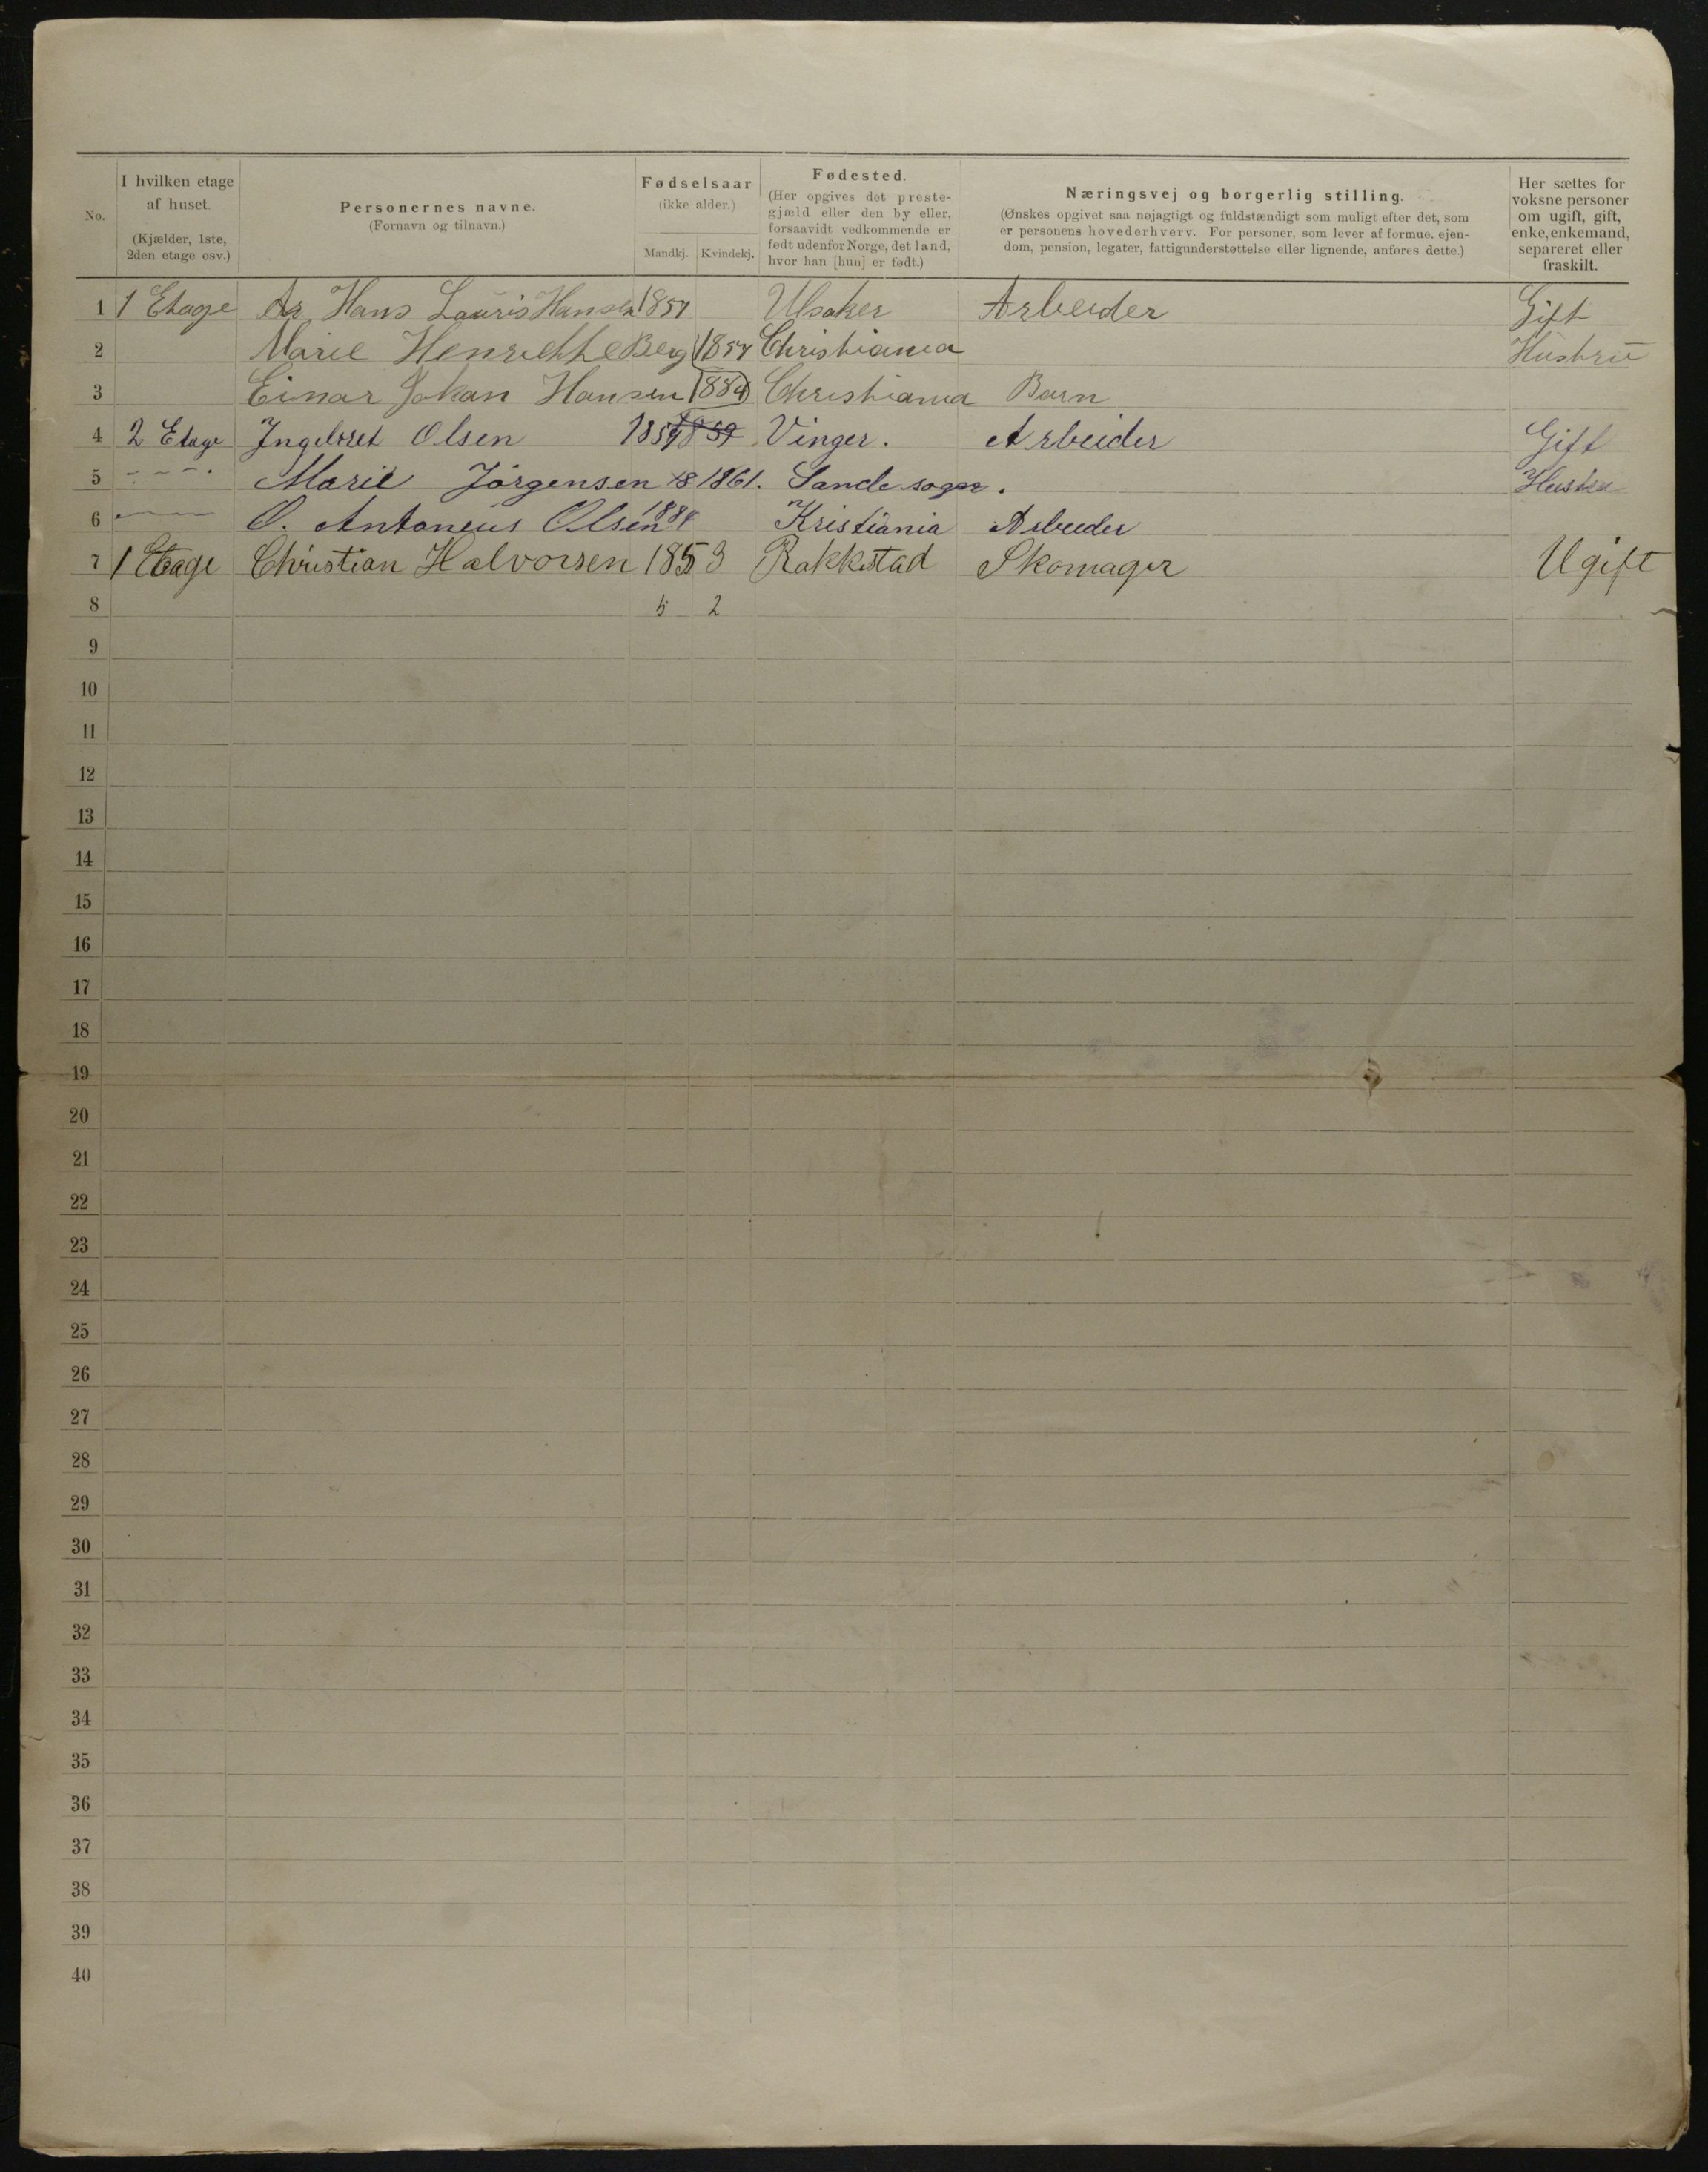 No.
I hvilken etage af huset. (Kjælder, 1ste, 2den etage osv.)
Personernes navne. (Fornavn og tilnavn.)
Fødselsaar (ikke alder.) Mandkj. Kvindekj.
Fødested. (Her opgives det prestegjæld eller den by eller, forsaavidt vedkommende er født udenfor Norge, det land, hvor han [hun] er født.)
Næringsvej og borgerlig stilling. (Ønskes opgivet saa nøjagtigt og fuldstændigt som muligt efter det, som er personens hovederhverv. For personer, som lever af formue, ejendom, pension, legater, fattigunderstøttelse eller lignende, anføres dette.)
Her sættes for voksne personer om ugift, gift, enke, enkemand, separeret eller fraskilt.
1 1 Etage Hans Lauris Hansen 1857 Ulsaker Arbeider Gift
2 Marie Henriethe Berg 1857 Christiania Hustru
3 Einar Johan Hansen 1884 Christiania Barn
4 2 Etage Ingebret Olsen 1859 Vinger. Arbeider Gift
5 - - - Marie Jörgensen 1861. Sande sogn. Hustru
6 O. Antoneus Olsen 1884 Kristiania Arbeider
7 1 Etage Christian Halvorsen 1853 Rakkestad Skomager Ugift
8 5 2
9
10
11
12
13
14
15
16
17
18
19
20
21
22
23
24
25
26
27
28
29
30
31
32
33
34
35
36
37
38
39
40